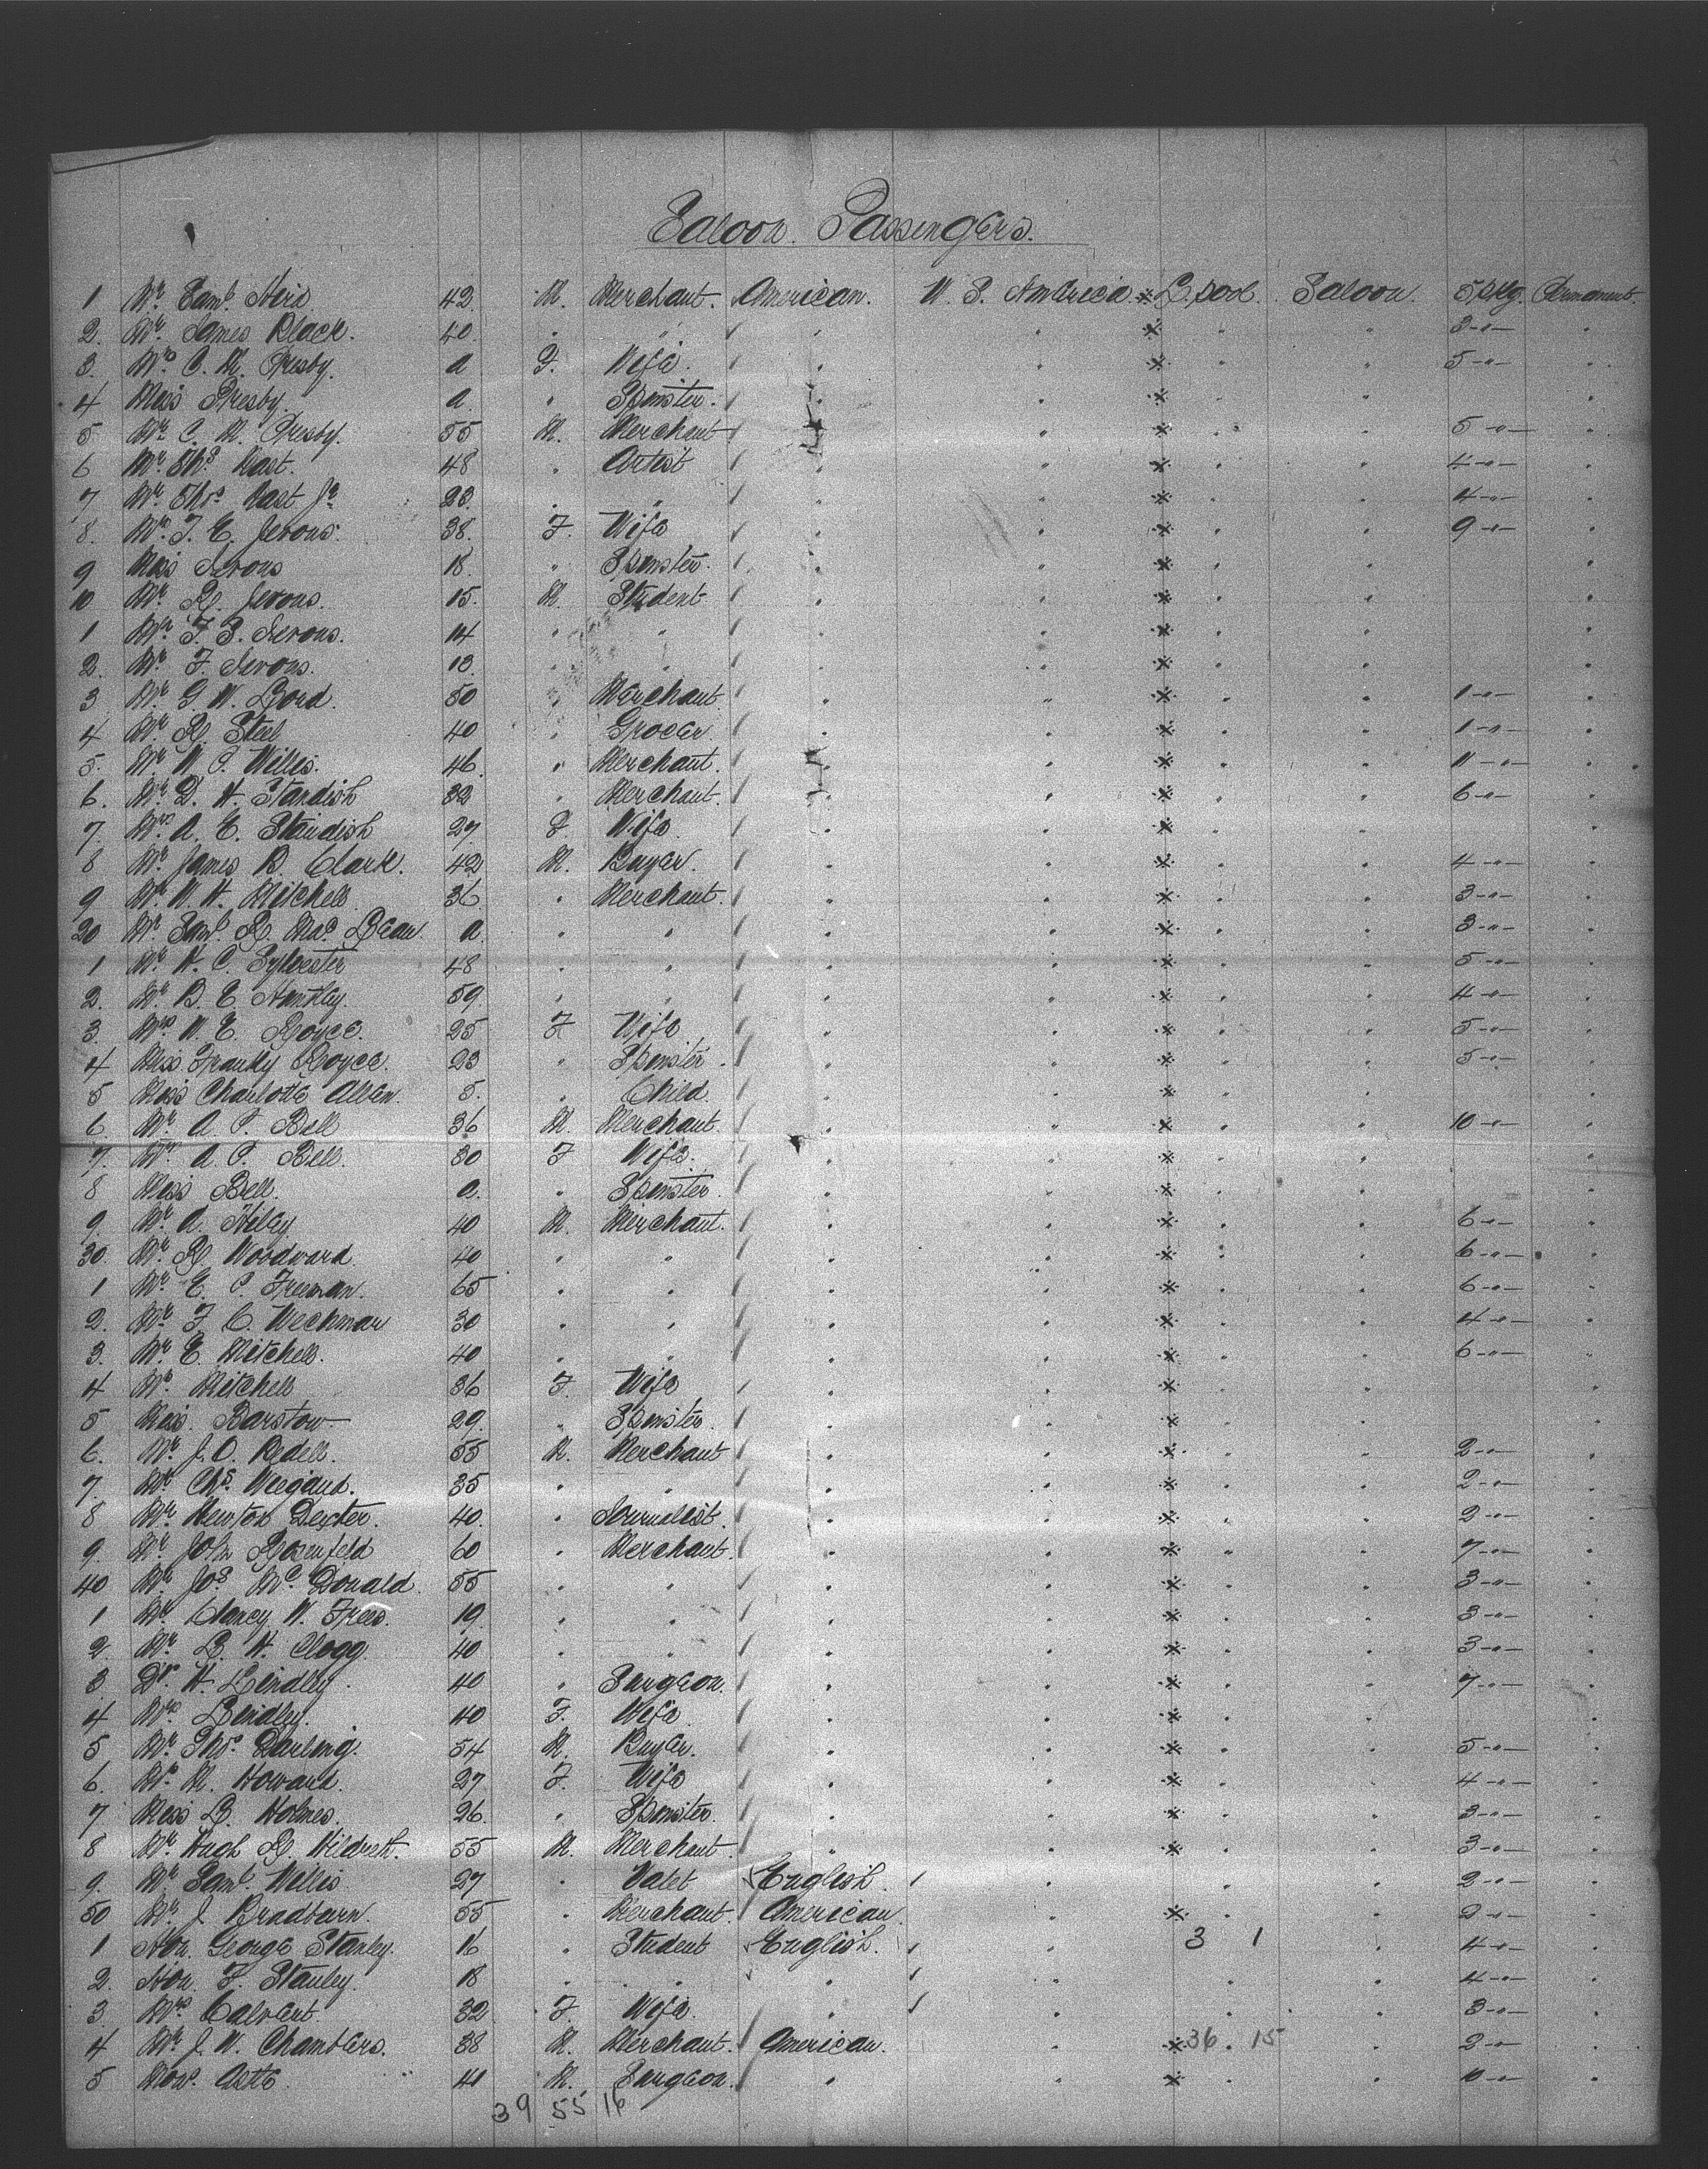 Saloon Passengers.
1 Mr Saml 42 M. Merchant. American. U. S. America × L'pool. Saloon. 5 pkg. Permanent.
2. Mr James Black. 40. " " × " " 3 -"-
3. Mrs C. M. Presby. a F. Wife. × " " 5 -"-
4 Miss Presby. a. " Spinster. × " "
5 Mr C. M. Presby. 55 M. Merchant × " " 5 -"-
6 Mr Ths Nast. 48 " Artist × " " 4 -"-
7 Mr Thos Nast Jr 23. " " × " " 4 -"-
8. Mrs T. E. Jevons. 38. F. Wife × " " 9 -"-
9 Miss Jevons 18. " Spinster. × " "
10 Mr R. Jevons. 15. M. Student × " "
1 Mr T. S. Jevons. 14 " " × " "
2. Mr F. Jevons. 13. " " × " "
3 Mr G. W. Lord. 50 " Merchant × " " 1 -"-
4 Mr R. Steel 40 " Grocer × " " 1 -"-
5. Mr W. P. Willis. 46. " Merchant. × " " 11 -"-
6. Mr D. H. Standish 32 " Merchant. × " " 6 -"-
7. Mrs A. E. Standish 27. F Wife. × " "
8 Mr James B. Clark. 42 M. Buyer. × " " 4 -"-
9 Mr W. H. Mitchell. 36 " Merchant. × " " 3 -"-
20 Mr Saml R. Mac Lean. a. " " × " " 3 -"-
1 Mr H. C. Sylvester 48 " " × " " 5 -"-
2. Mr B. E. Huntley. 59. " " × " " 4 -"-
3. Mrs W. E. Royce. 25 F Wife × " " 5 -"-
4 Miss Royce. 23 " Spinster. × " " 5 -"-
5 Miss Charlotte Allen. 5. " Child. × " "
6. Mr A. P. Bell 36 M. Merchant. × " " 10 -"-
7. Mrs A. P. Bell. 30 F Wife. × " "
8 Miss Bell. a. " Spinster. × " "
9 Mr A. 40 M. Merchant. × " " 6 -"-
30. Mr R. Woodward 40 " " × " " 6 -"-
1 Mr E. P. Freeman. 65 " " × " " 6 -"-
2. Mr F. C. Wechman 30 " " × " " 4 -"-
3. Mr E. Mitchell. 40 " " × " " 6 -"-
4 Mrs Mitchell 36 F. Wife × " "
5 Miss Barstow 29. " Spinster. × " "
6. Mr J. O. Bedell. 55 M. Merchant × " " 2 -"-
7 Mr Chs Weegand. 35 " " × " " 2 -"-
8 Mr Newton Dexter. 40. " Journalist. × " " 2 -"-
9. Mr John Rosenfeld 60 " Merchant. × " " 7 -"-
40 Mr Jos Mc Donald. 55 " " × " " 3 -"-
1 Mr W. Frees. 19. " " × " " 3 -"-
2 Mr L. H. Clogg. 40 " " × " " 3 -"-
3 Dr H. Lindley. 40 " Surgeon. × " " 7 -"-
4 Mrs Lindley. 40 F. Wife × " "
5 Mr Thos Darling. 54 M. Buyer. × " " 5 -"-
6. Mrs M. Howard. 27 F. Wife × " " 4 -"-
7 Miss L. Holmes. 26. " Spinster. × " " 3 -"-
8 Mr Hugh R. Hildreth. 55 M. Merchant. × " " 3 -"-
9. Mr Saml Willis 27 " Valet English. " " 2 -"-
50 Mr J. Bradburn. 55 " Merchant. American. × " " 2 -"-
1 Hon. George Stanley. 16 " Student English. 3 1 " 4 -"-
2. Hon. F. Stanley. 18 " " " " 4 -"-
3 Mrs Calvert 32 F. Wife " " 3 -"-
4 Mr J. W. Chambers. 38 M. Merchant. American. × 36 15 " 2 -"-
5 41 M. Surgeon. × " " 10 -"-
39 55 16